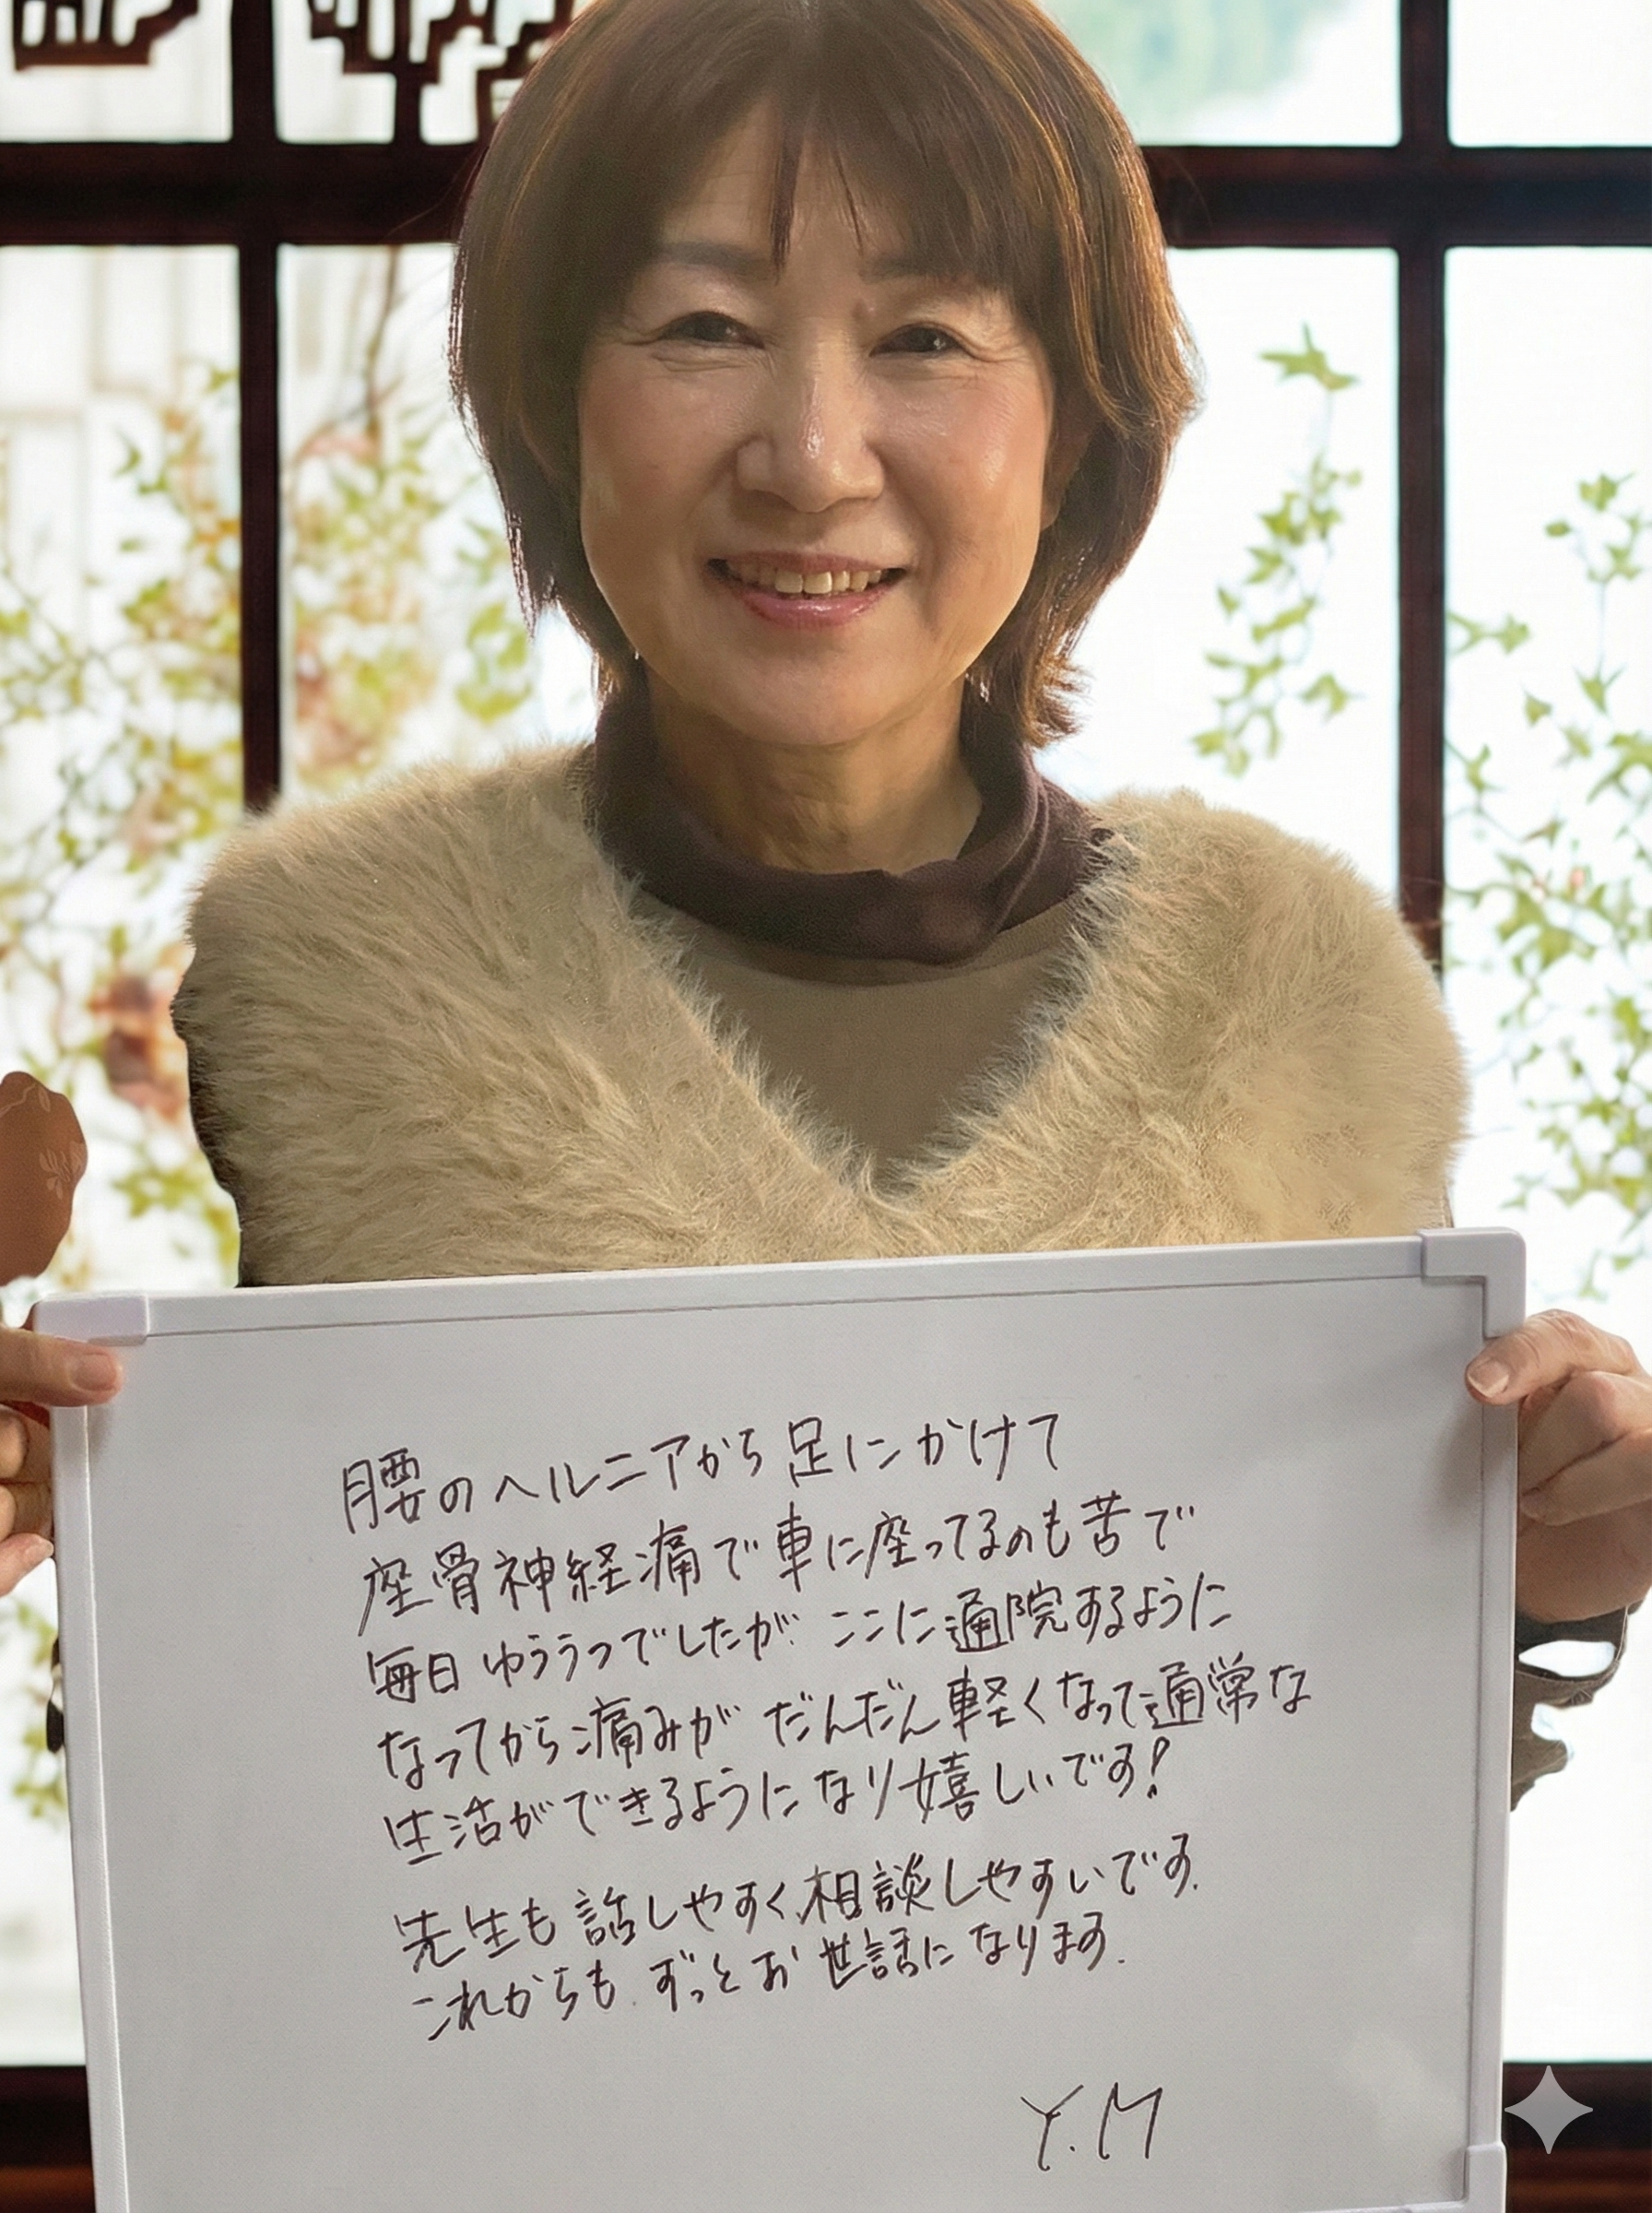 腰のヘルニアから足にかけて
座骨神経痛で車に座ってるのも苦で
毎日ゆううつでしたが ここに通院するように
なってから痛みが だんだん軽くなって通常な
生活ができるようになり嬉しいです!
先生も話しやすく、相談しやすいです.
これからも.ずっとお世話になります.
Y.M